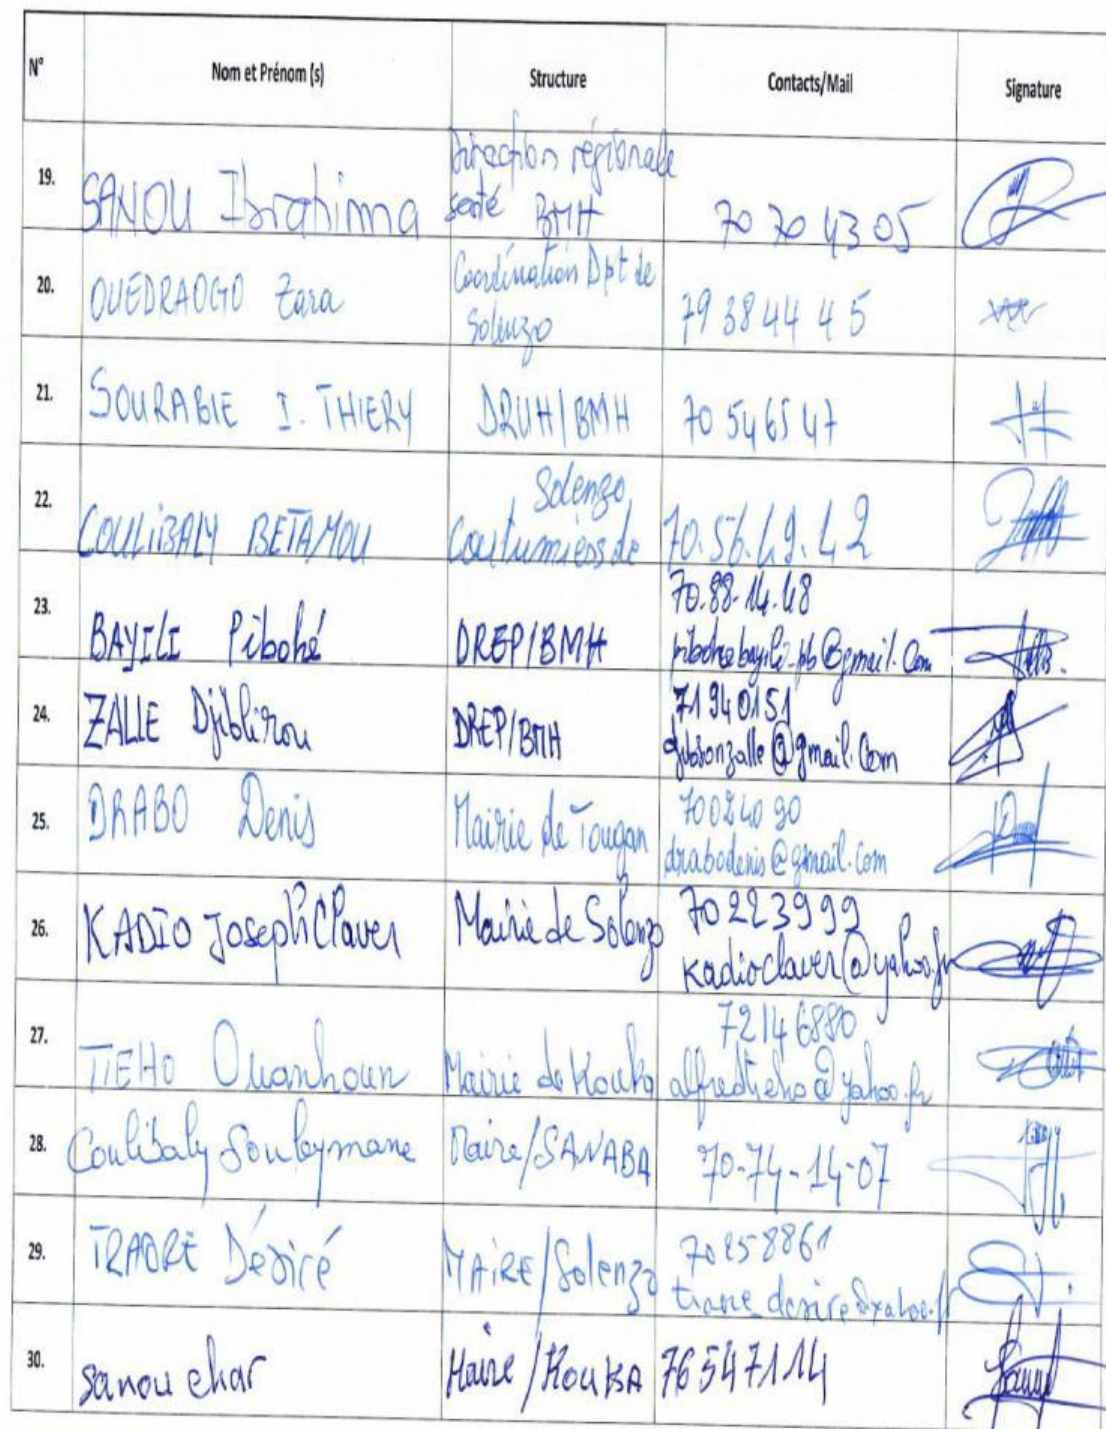 N° Nom et Prénom (s) Structure Contacts/Mail Signature
19. SANOU Ibrahima Direction régionale santé BMH 70 70 43 05
20. OUEDRAOGO Zara Coordination Dpt de Solenzo 79 38 44 45
21. SOURABIE I. THIERY DRUH/BMH 70 54 65 47
22. COULIBALY BETAMOU Coutumiers de Solenzo 70.56.49.42
23. BAYILI Pibohé DREP/BMH 70.88.14.48
24. ZALLE Djiblirou DREP/BMH 71940151
25. DRABO Denis Mairie de Tougan 70024090
drabodenis@gmail.com
26. KADIO Joseph Claver Mairie de Solenzo 70223999
kadioclaver@yahoo.fr
27. TIEHO Ouanhoun Mairie de Kouka 72146880
alfredtieho@yahoo.fr
28. Coulibaly Souleymane Maire/SANABA 70-74-14-07
29. TRAORE Désiré MAIRE/Solenzo 70258861
30. sanou char Maire/KOUKA 76547114